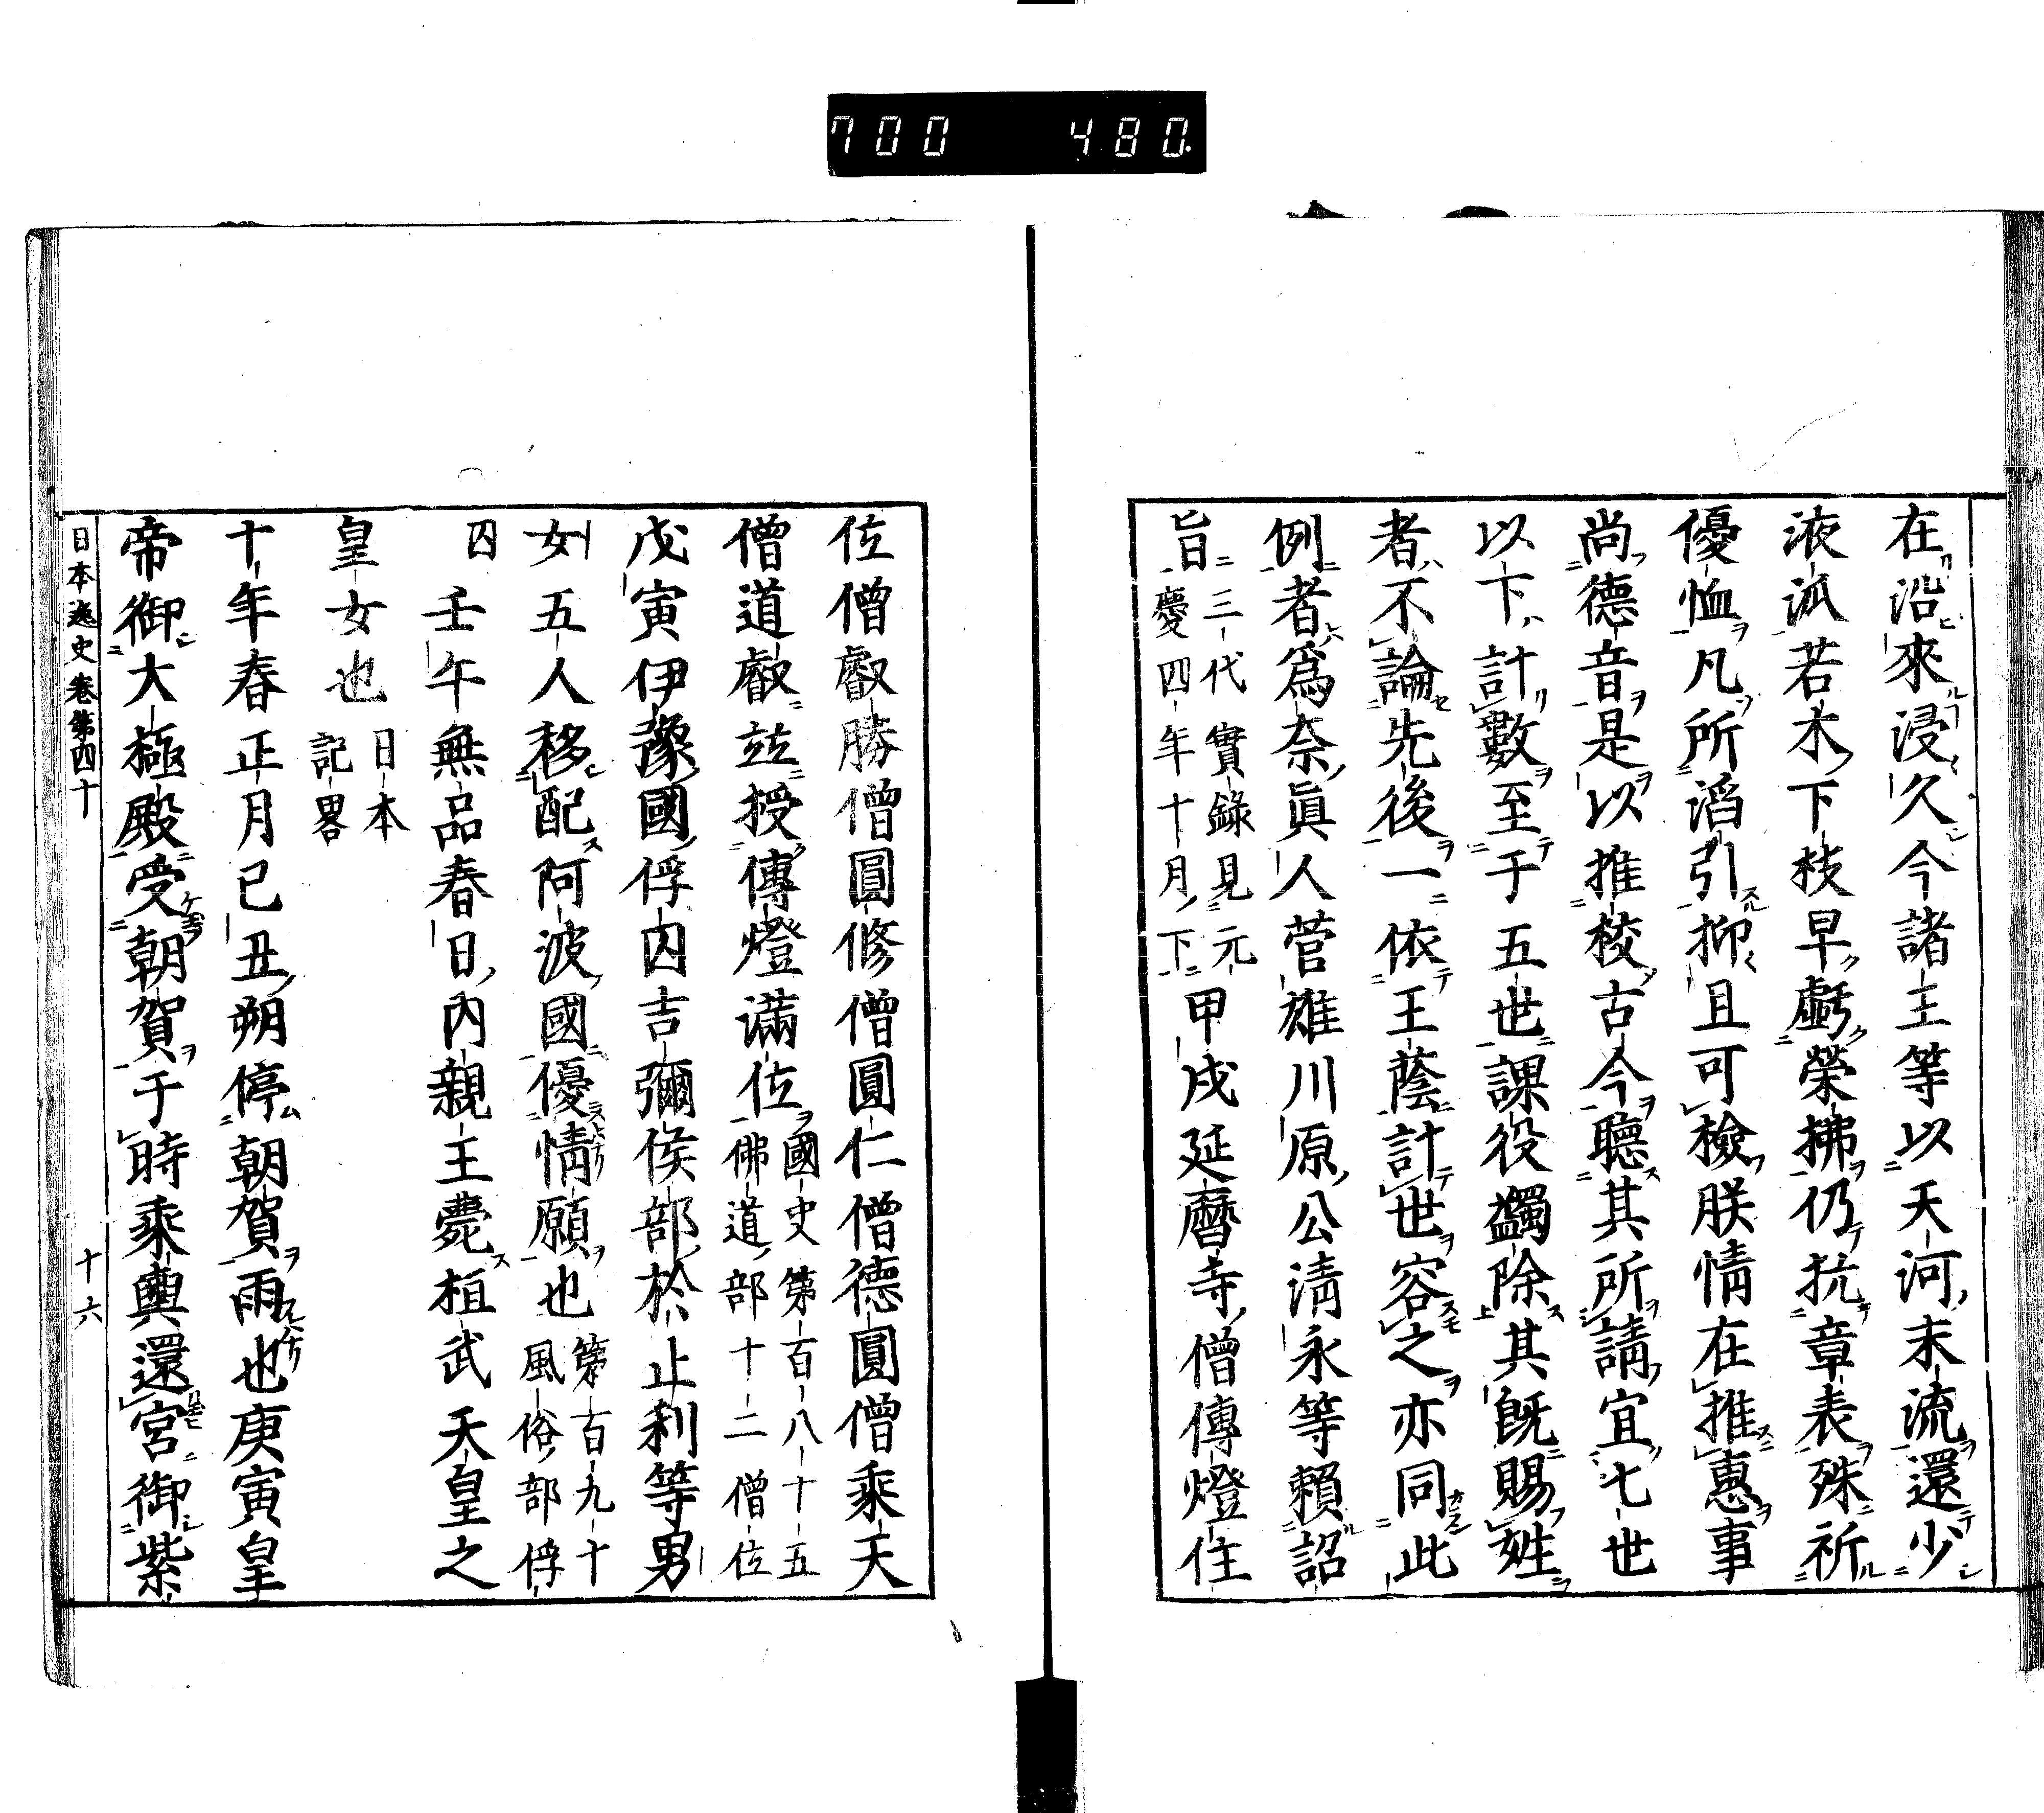 700 480
在沿來浸久今諸王等以天河末流還少
液派若木下枝早虧榮拂仍抗章表殊祈
優恤凡所滔引抑且可檢朕情在推惠事
尚德音是以推校古今聽其所請宜七世
以下計數至于五世課役蠲除其既賜姓
者不論先後一依王蔭計世容之亦同此
例者爲奈眞人菅雄川原公清永等賴詔
旨三代實錄見元慶四年十月下甲戌延曆寺僧傳燈住
位僧叡勝僧圓修僧圓仁僧德圓僧乘天
僧道叡並授傳燈滿位國史第百八十五佛道部十二僧位
戊寅伊豫國俘囚吉彌侯部於止利等男
女五人移配阿波國優情願也第百九十風俗部俘
囚壬午無品春日內親王薨桓武天皇之
皇女也日本記畧
十年春正月己丑朔停朝賀雨也庚寅皇
帝御大極殿受朝賀于時乘輿還宮御紫
日本逸史卷第四十 十六